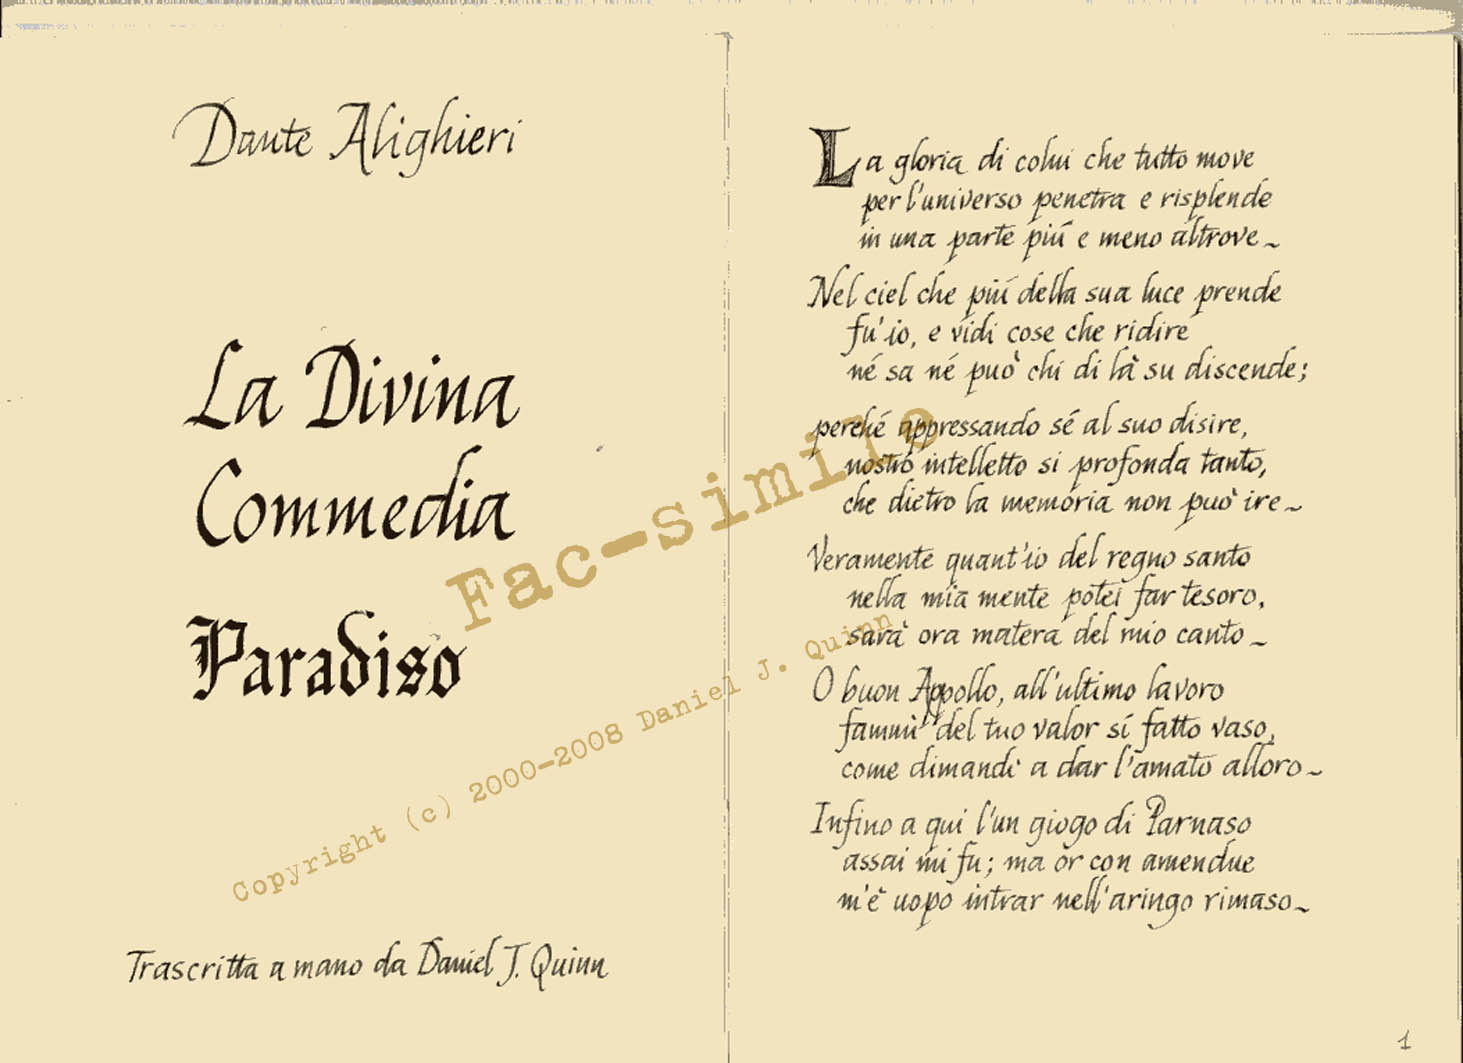 Dante Alighieri
La Divina
Commedia
Paradiso
Trascritta a mano da Daniel J. Quinn
La gloria di colui che tutto move
per l'universo penetra e risplende
in una parte piú e meno altrove~
Nel ciel che piú della sua luce prende
fu' io, e vidi cose che ridire
né sa né può chi di là su discende;
perché appressando sé al suo disire,
nostro intelletto si profonda tanto,
che dietro la memoria non può ire~
Veramente quant'io del regno santo
nella mia mente potei far tesoro,
sarà ora matera del mio canto~
O buon Appollo, all'ultimo lavoro
fammi del tuo valor sí fatto vaso,
come dimandi a dar l'amato alloro~
Infino a qui l'un giogo di Parnaso
assai mi fu; ma or con amendue
m'è uopo intrar nell'aringo rimaso~
1
Fac-simile
Copyright (c) 2000-2008 Daniel J. Quinn